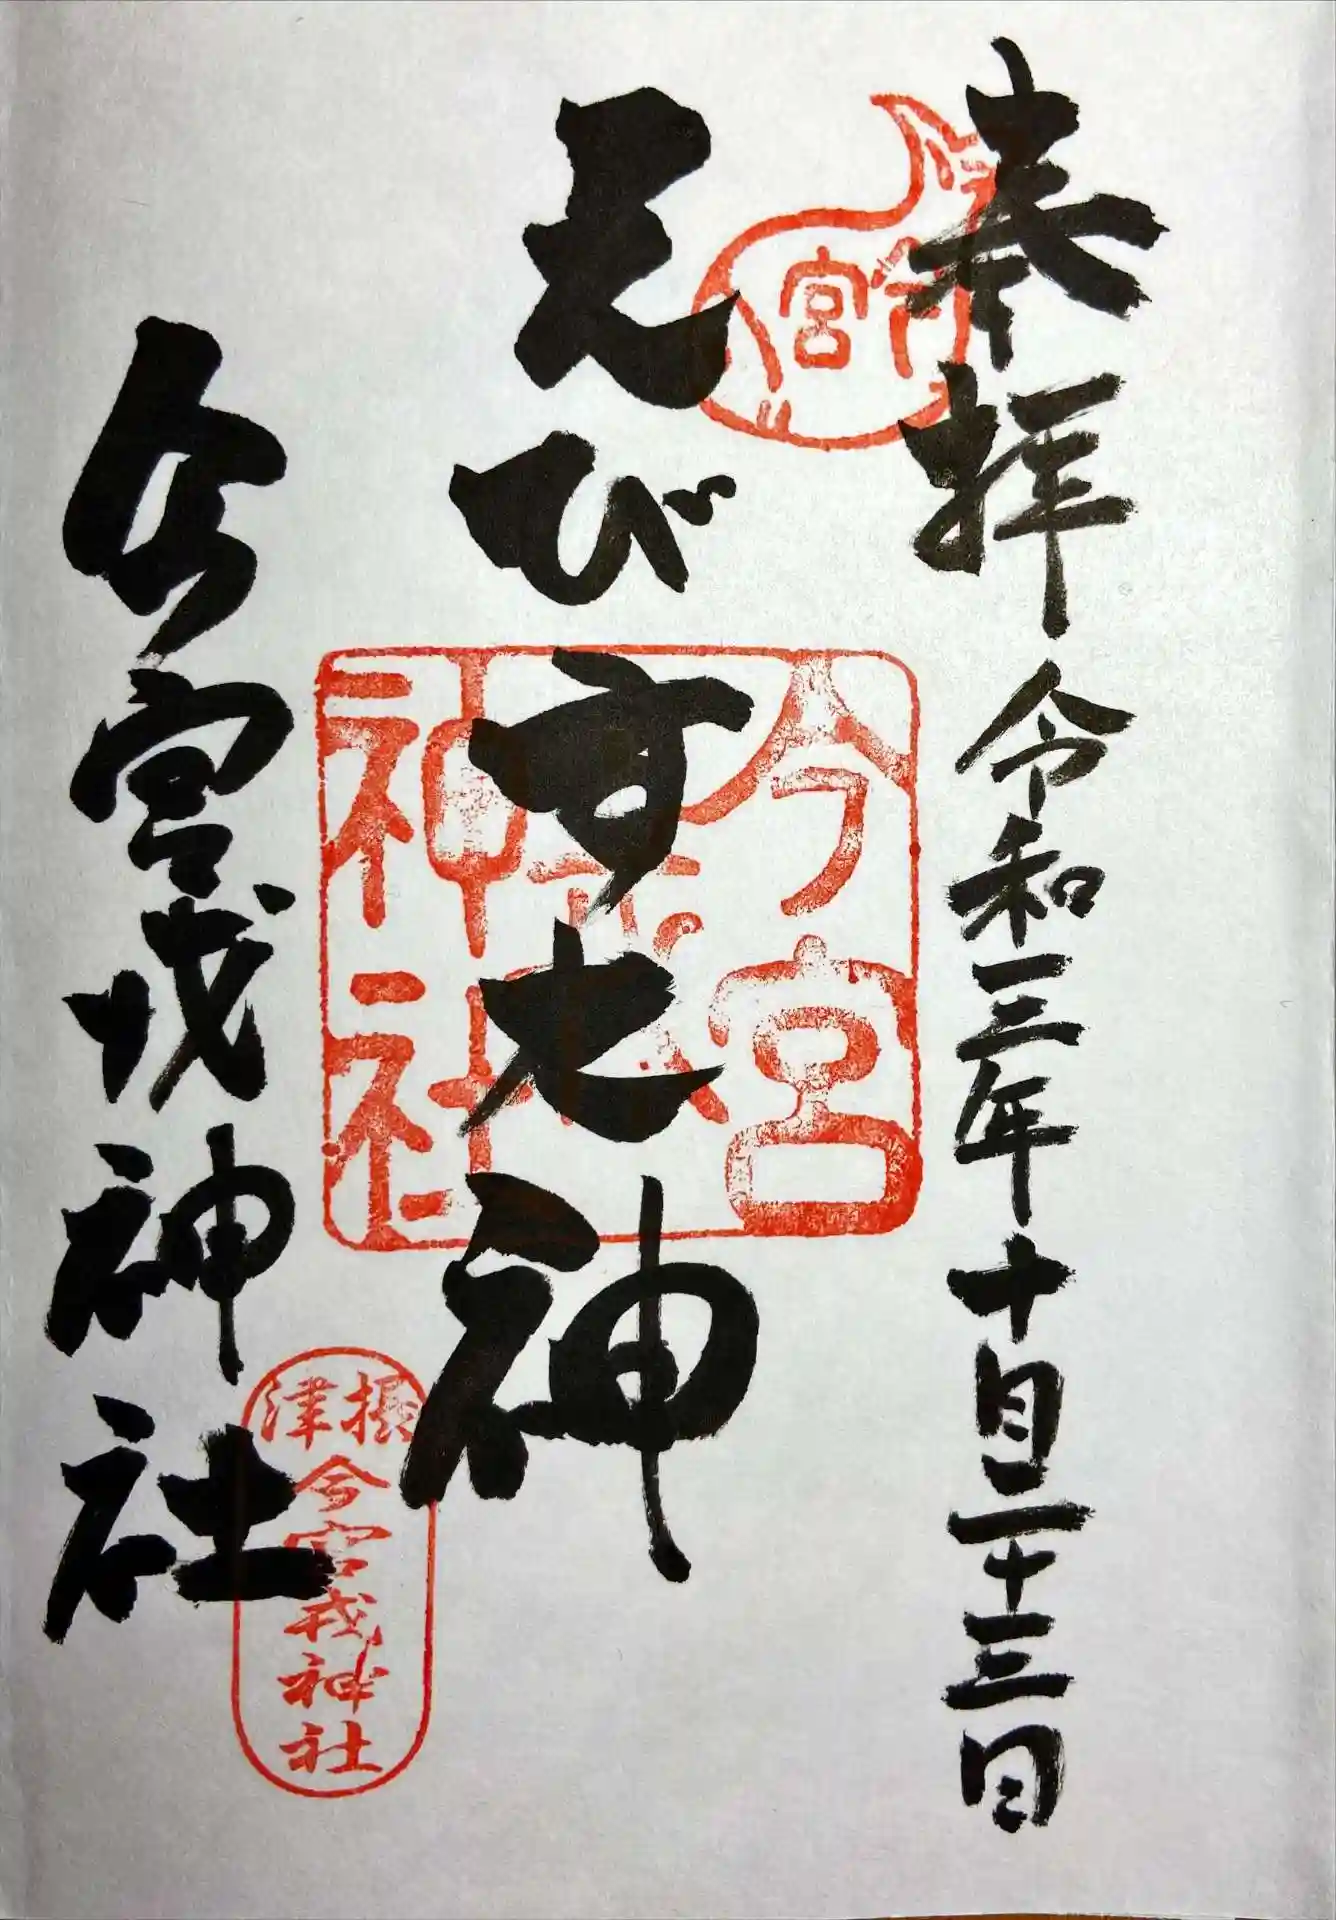 奉拝 令和三年十月二十三日
えびす大神
今宮戎神社
今宮
今宮
戎
神社
摂津
今宮戎神社